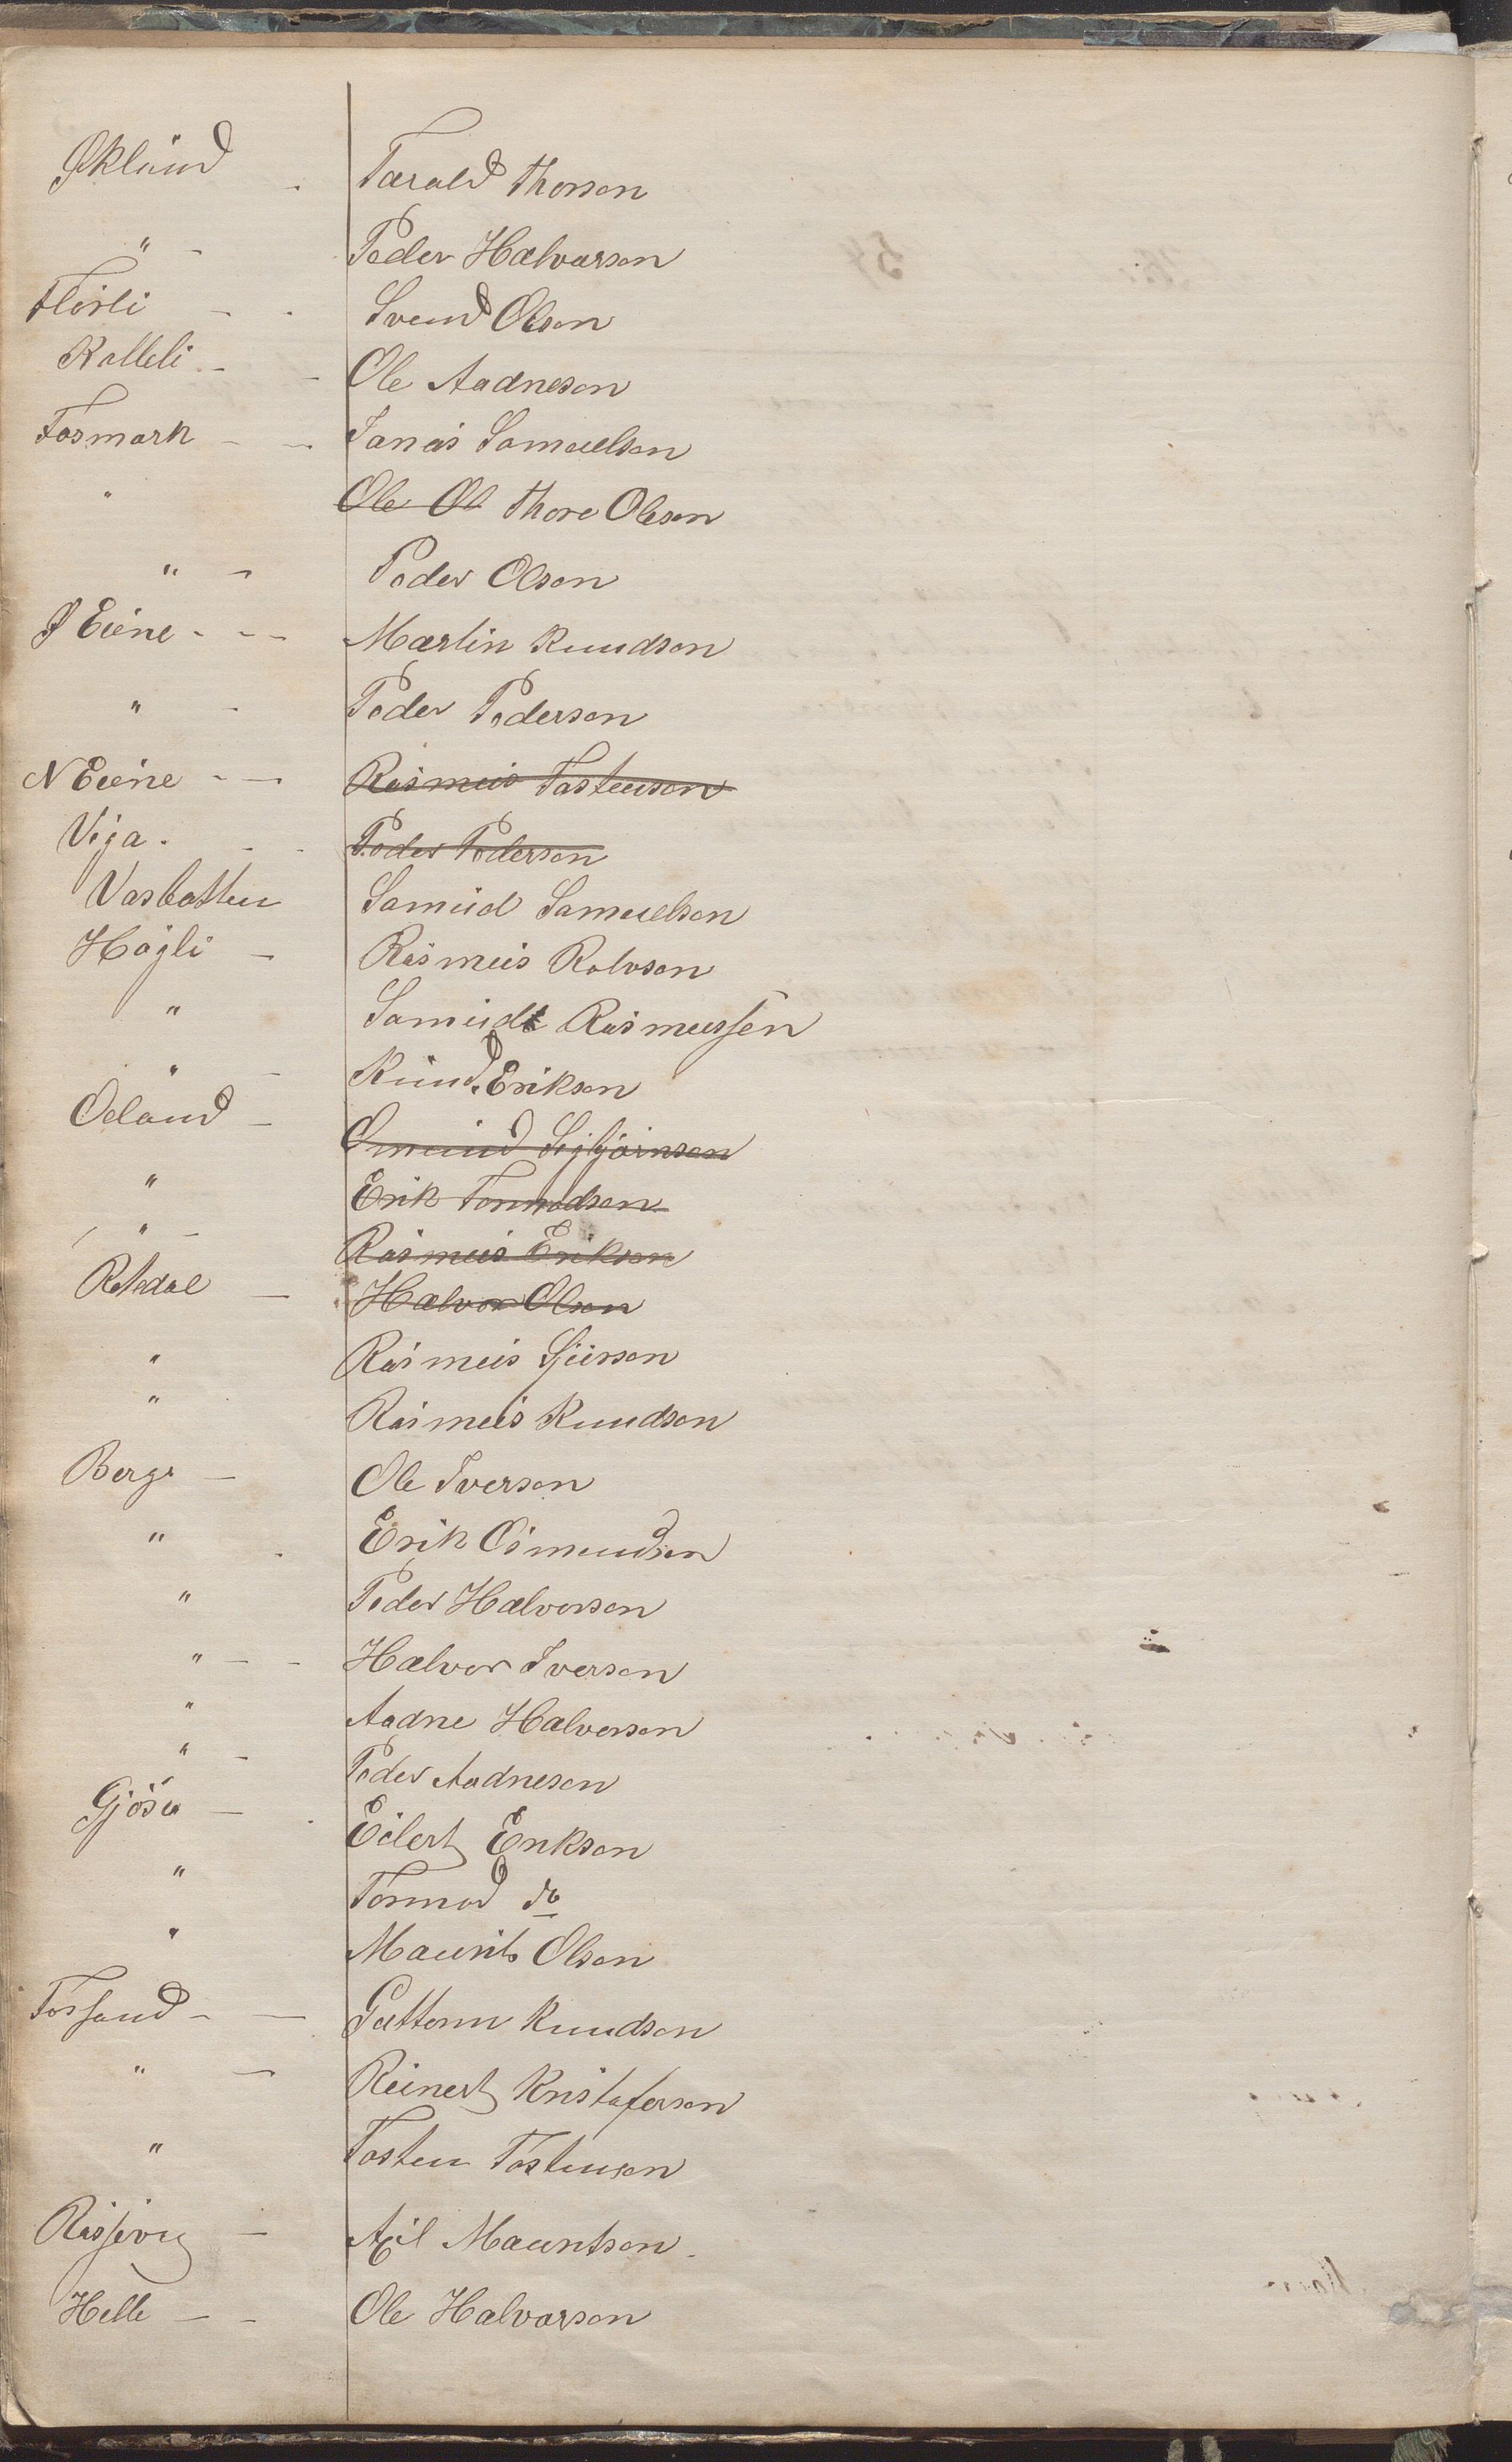 Øklund - Tarald Thorson
" - Peder Halvorson
Flörli - - Svend Olson
Kalleli - - Ole Aadneson
Fosmark - - Jonas Samuelson
" Ole Ol Thore Oleson
" - Peder Olson
Ø Eiene - - - Martin Knudson
" - Peder Pederson
N Eiene - - Rasmus Tostenson
Viga - - Peder Pederson
Vasbotten Samuel Samuelson
Högli - Rasmus Rolvson
" Samuel Rasmussen
" - Knud Erikson
Oeland - Omund Sigbjörnson
" Erik Tormodson
" - Rasmus Erikson
Rettedal - Halvor Olson
" Rasmus Sjurson
" Rasmus Knudson
Berge - Ole Iverson
" - Erik Osmundson
" Peder Halvorson
" - - Halvor Iverson
" Aadne Halvorson
" - Peder Aadneson
Gjöse - Eilert Erikson
" Tormod do
" Maurits Olson
Fossand - - Guttorm Knudson
" - Reinert Kristoferson
" Tosten Tostenson
Rössevig - Axil Mauritson
Helle - - Ole Halvorson